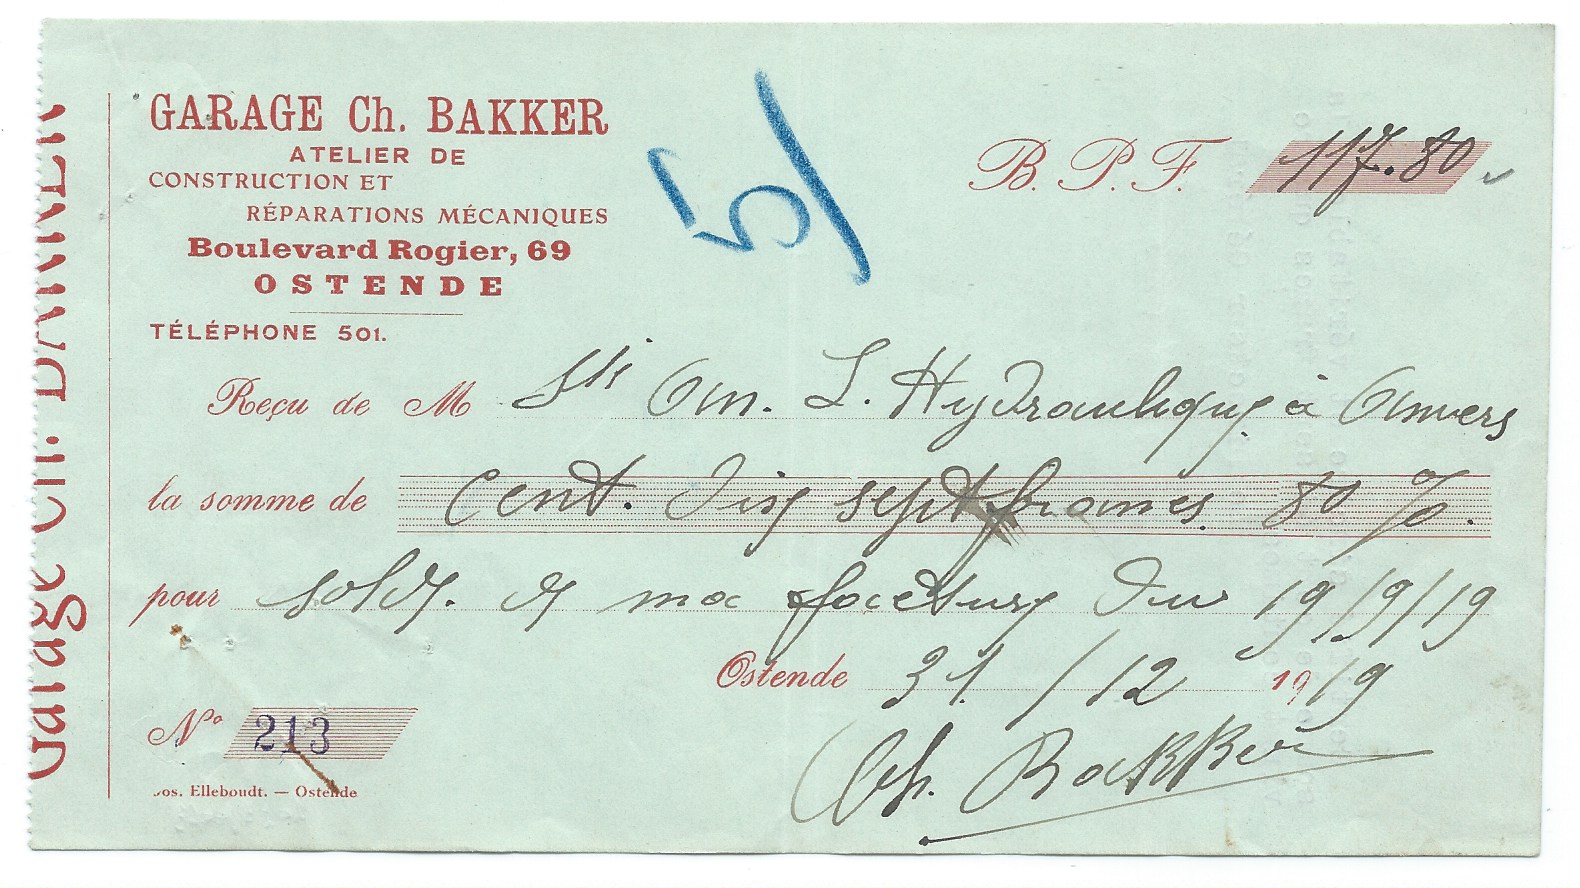 GARAGE Ch. BAKKER
ATELIER DE
CONSTRUCTION ET
RÉPARATIONS MÉCANIQUES
Boulevard Rogier, 69
OSTENDE
TÉLÉPHONE 501.
51
B. P. F. 117.80
Reçu de M Sté An. L. Hydraulique à Anvers
la somme de cent. dix sept francs 80 %.
pour solde. de ma facture du 19/9/19
Ostende 31./12 1919
Nº 213
Ch. Bakker
Jos. Elleboudt. — Ostende
Garage Ch. BAKKER